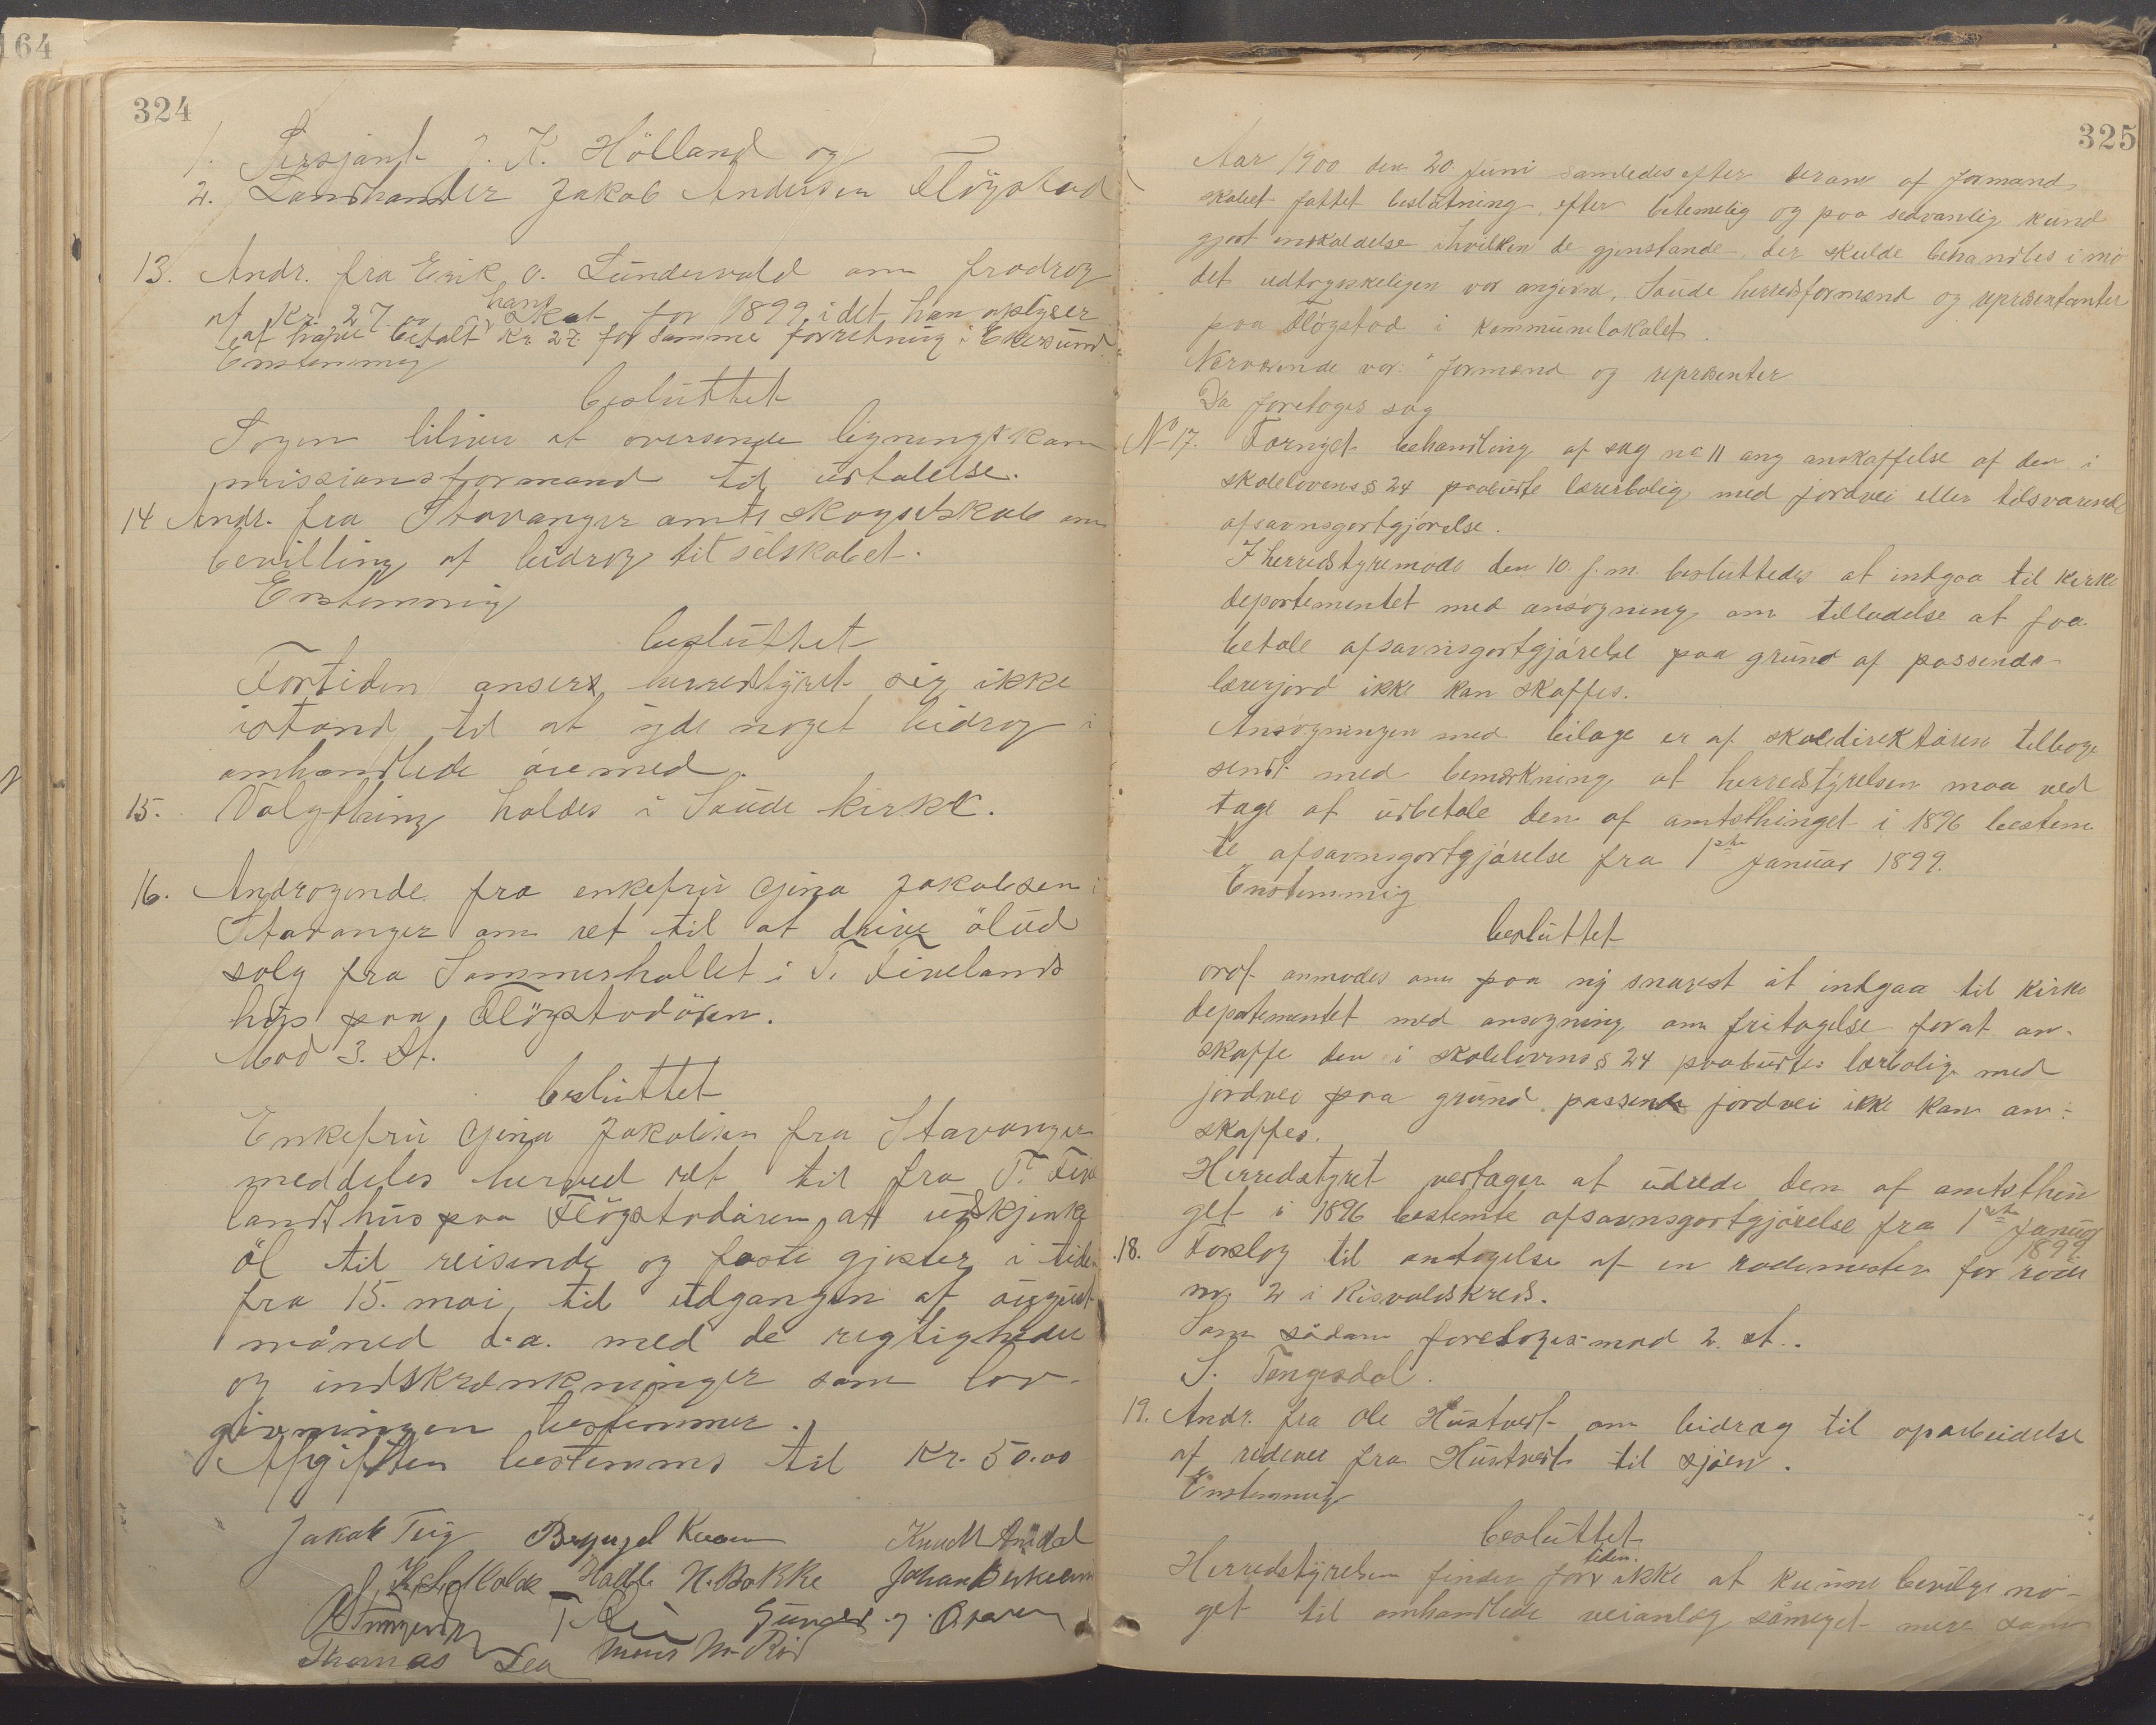 64
324
1. Sersjant J. K. Hölland og
2. Landhandler Jakob Andersen Flögstad
13. Andr. fra Erik O. Lundevold om fradrag
af Kr. 27.00 i hans Skat for 1899 idet han oplyser
at have betalt Kr 27 for samme forretning i Ekersund.
Enstemmig
besluttet
Sagen bliver at oversende ligningskom
missionsformand til udtalelse.
14 Andr. fra Stavanger amts skogselskab om
bevilling af bidrag til selskabet.
Enstemmig
besluttet
Fortiden ansers herredstyret sig ikke
istand til at yde noget bidrag i
omhandlede øiemed.
15. Valgthing holdes i Saude kirke.
16. Andragende fra enkefru Gina Jakobsen i
Stavanger om ret til at drive ölud
salg fra Sommerhallet i T. Fivelands
hus paa Flögstadören.
Mod 3. St.
besluttet
Enkefru Gina Jakobsen fra Stavanger
meddeles herved ret til fra T. Five
lands hus paa Flögstadören at udskjenke
öl til reisende og faste gjester i tiden
fra 15. mai til udgangen af august
måned d.a. med de rigtigheder
og indskrænkninger som lov-
givningen bestemmer.
Afgiften bestemmes til Kr. 50.00
Jakob Teig Knudt Årrdal
H. Bakke Johan Birkeland
Thomas Lea Mons M. Rød
325
Aar 1900 den 20. Juni samledes efter derom af formand
skabet fattet beslutning, efter betimelig og paa sedvanlig kund
gjort inskaldelse i hvilken de gjenstande der skulde behandles i mö
det udtrygeskeligen var angivne, Saude herredsformænd og repræsentanter
paa Flögstad i kommunelokalet.
Nærværende var: formænd og repræsenter
Da foretoges sag
No 17. Fornyet behandling af sag no 11 ang anskaffelse af den i
skolelovens § 24 paabudte lærerbolig med jordvei eller tilsvarende
afsavnsgortgjörelse.
I herredstyremöde den 10. f.m. besluttedes at indgaa til kirke
departementet med ansögning om tilladelse at faa
betale afsavnsgortgjörelse paa grund af passende
lærerjord ikke kan skaffes.
Ansögningen med bilage er af skoledirektören tilbage
sendt med bemærkning at herredstyrelsen maa ved
tage at udbetale den af amtsthinget i 1896 bestem
te afsavnsgortgjörelse fra 1ste Januar 1899.
Enstemmig
besluttet
ordf. anmodes om paa ny snarest at indgaa til kirke
departementet med ansögning om fritagelse forat an-
skaffe den i skolelovens § 24 paabudte lærbolig med
jordvei paa grund passende jordvei ikke kan an-
skaffes.
Herredstyret vedtager at udrede den af amtsthin
get i 1896 bestemte afsavnsgortgjörelse fra 1ste Januar
1899.
18. Forslag til antagelse af en rodemester for rode
no. 2 i Risvoldskreds.
Som sådan foretoges mod 2. st..
S. Tengesdal.
19. Andr. fra Ole Hustveit om bidrag til oparbeidelse
af rideveie fra Hustveit til sjöen.
Enstemmig
besluttet
Herredstyrelsen finder for tiden ikke at kunne bevilge no-
get til omhandlede veianlæg såmeget mere som